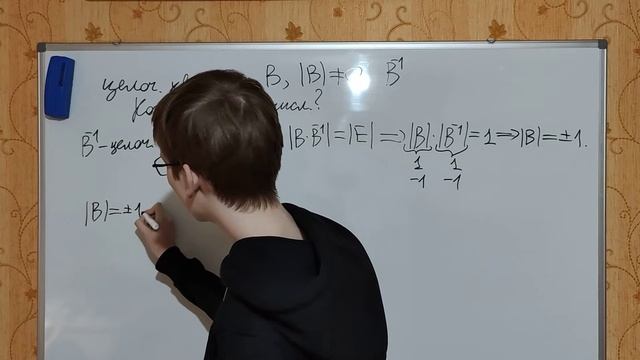 целоч. B, |B|≠ B⁻¹
числ.?
B⁻¹-целоч. |B·B⁻¹|=|E| ⇒ |B|·|B⁻¹|=1 ⇒ |B|=±1.
1 1
-1 -1
|B|=±1